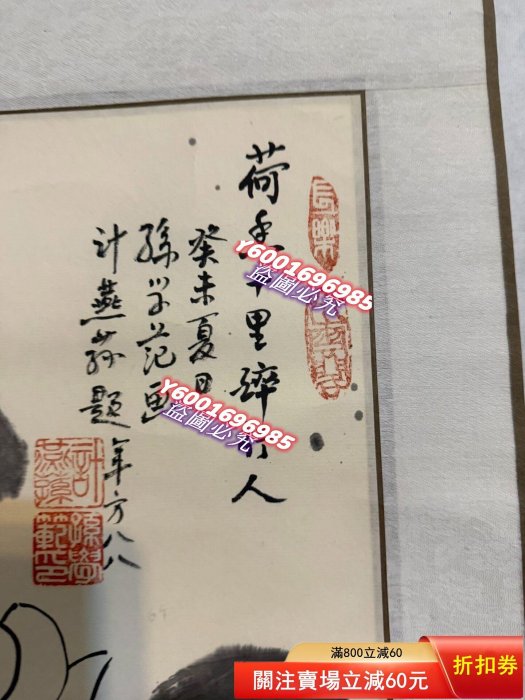 荷香十里醉行人
癸未夏日
孫学范画
计燕荪題
年方八八
計燕蓀
孫學範印
Y6001696985
盜圖必究
Y6001696985
盜圖必究
滿800立減60
關注賣場立減60元
折扣券